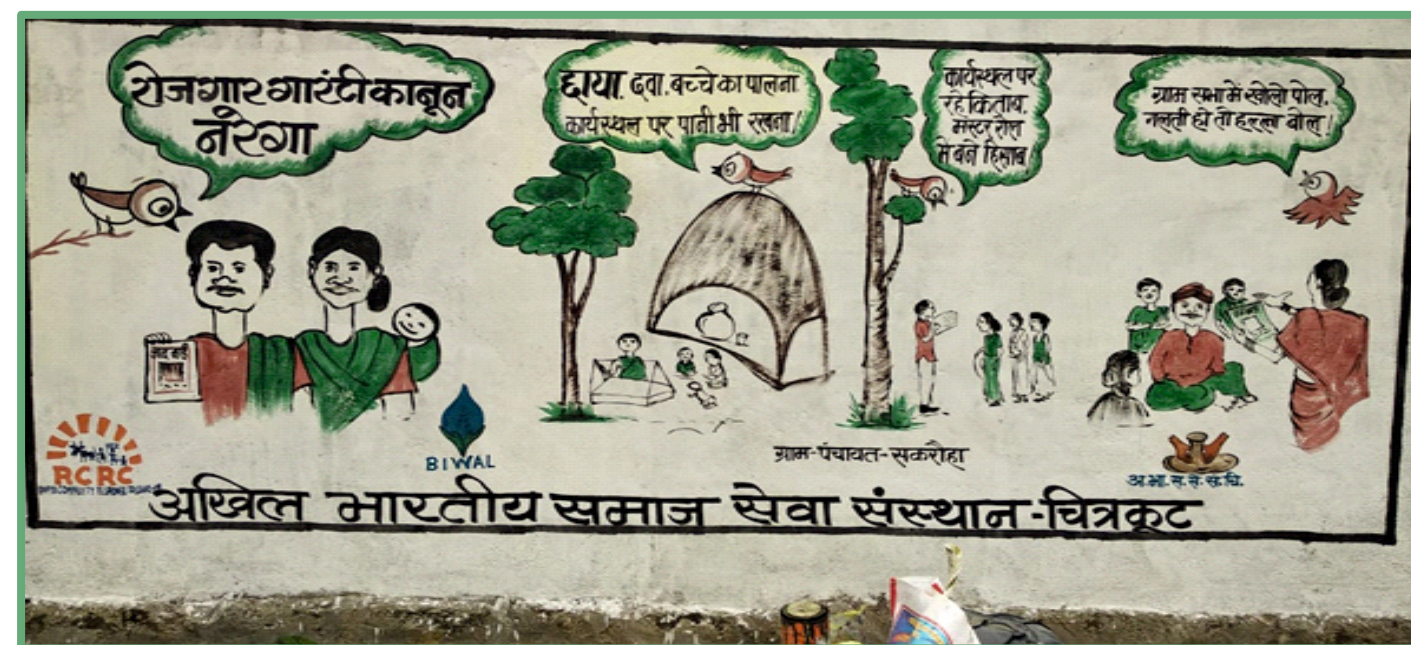 रोजगार गारंटी कानून
नरेगा
छाया. दवा. बच्चे का पालना
कार्यस्थल पर पानी भी रखना!
कार्यस्थल पर
रहे किताब.
मस्टर रौल
मे बने हिसाब!
ग्राम सभा में खोलो पोल.
गलती हो तो हल्ला बोल!
BIWAL
RCRC
ग्राम-पंचायत-सकरौहा
अ.भा.स.से.सं.चि.
अखिल भारतीय समाज सेवा संस्थान-चित्रकूट